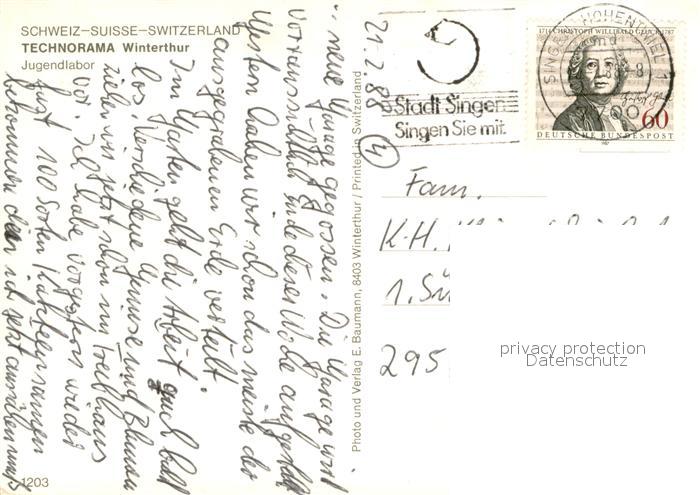 SCHWEIZ–SUISSE–SWITZERLAND
TECHNORAMA Winterthur
Jugendlabor
21.2.88
(4)
... neue Garage gegossen. Die Garage wird
voraussichtlich Ende dieser Woche aufgestellt
Gestern haben wir schon das meiste der
ausgegrabenen Erde verteilt.
Im Garten geht die Arbeit auch bald
los. Verschiedene Gemüse und Blumen
ziehen wir jetzt schon im Treibhaus
vor. Ich habe vorgestern wieder
fast 100 Sorten Kakteensamen
bekommen den ich jetzt aussäen muß
1203
Photo und Verlag E. Baumann, 8403 Winterthur / Printed in Switzerland
Stadt Singen
Singen Sie mit.
SINGEN HOHENTWIEL 1
1714 CHRISTOPH WILLIBALD GLUCK 1787
60
DEUTSCHE BUNDESPOST
Fam.
K-H.
1.
295
privacy protection
Datenschutz